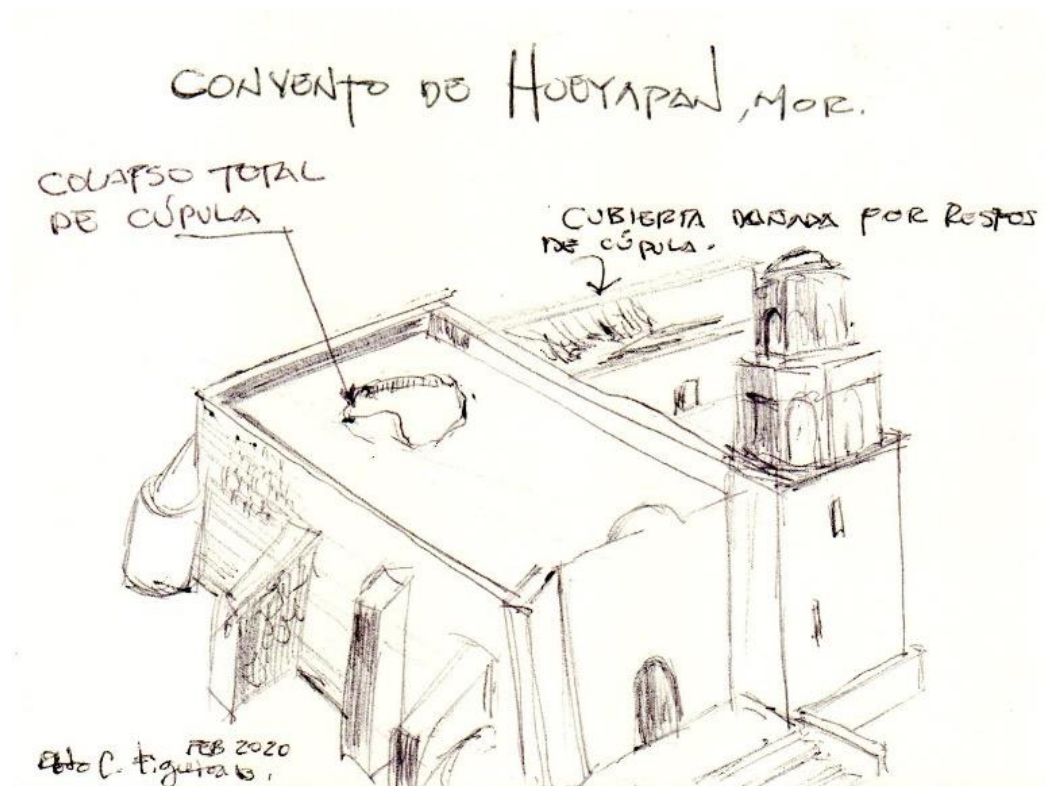 CONVENTO DE HUEYAPAN, MOR.
COLAPSO TOTAL
DE CÚPULA
CUBIERTA DAÑADA POR RESTOS
DE CÚPULA.
FEB 2020
C. Figueroa